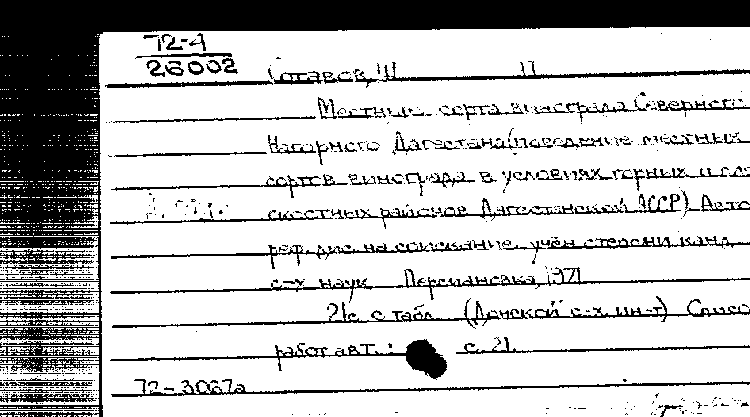 72-4
26002
Местные сорта винограда Северного
Нагорного Дагестана (поведение местных
сортов винограда в условиях горных и пло
скостных районов Дагестанской АССР) Авто
реф. дис. на соискание учен степени канд.
с-х наук Персиановка, 1971
21с. с табл. (Донской с-х. ин-т) Списо
работ авт.: с. 21.
72-3067а